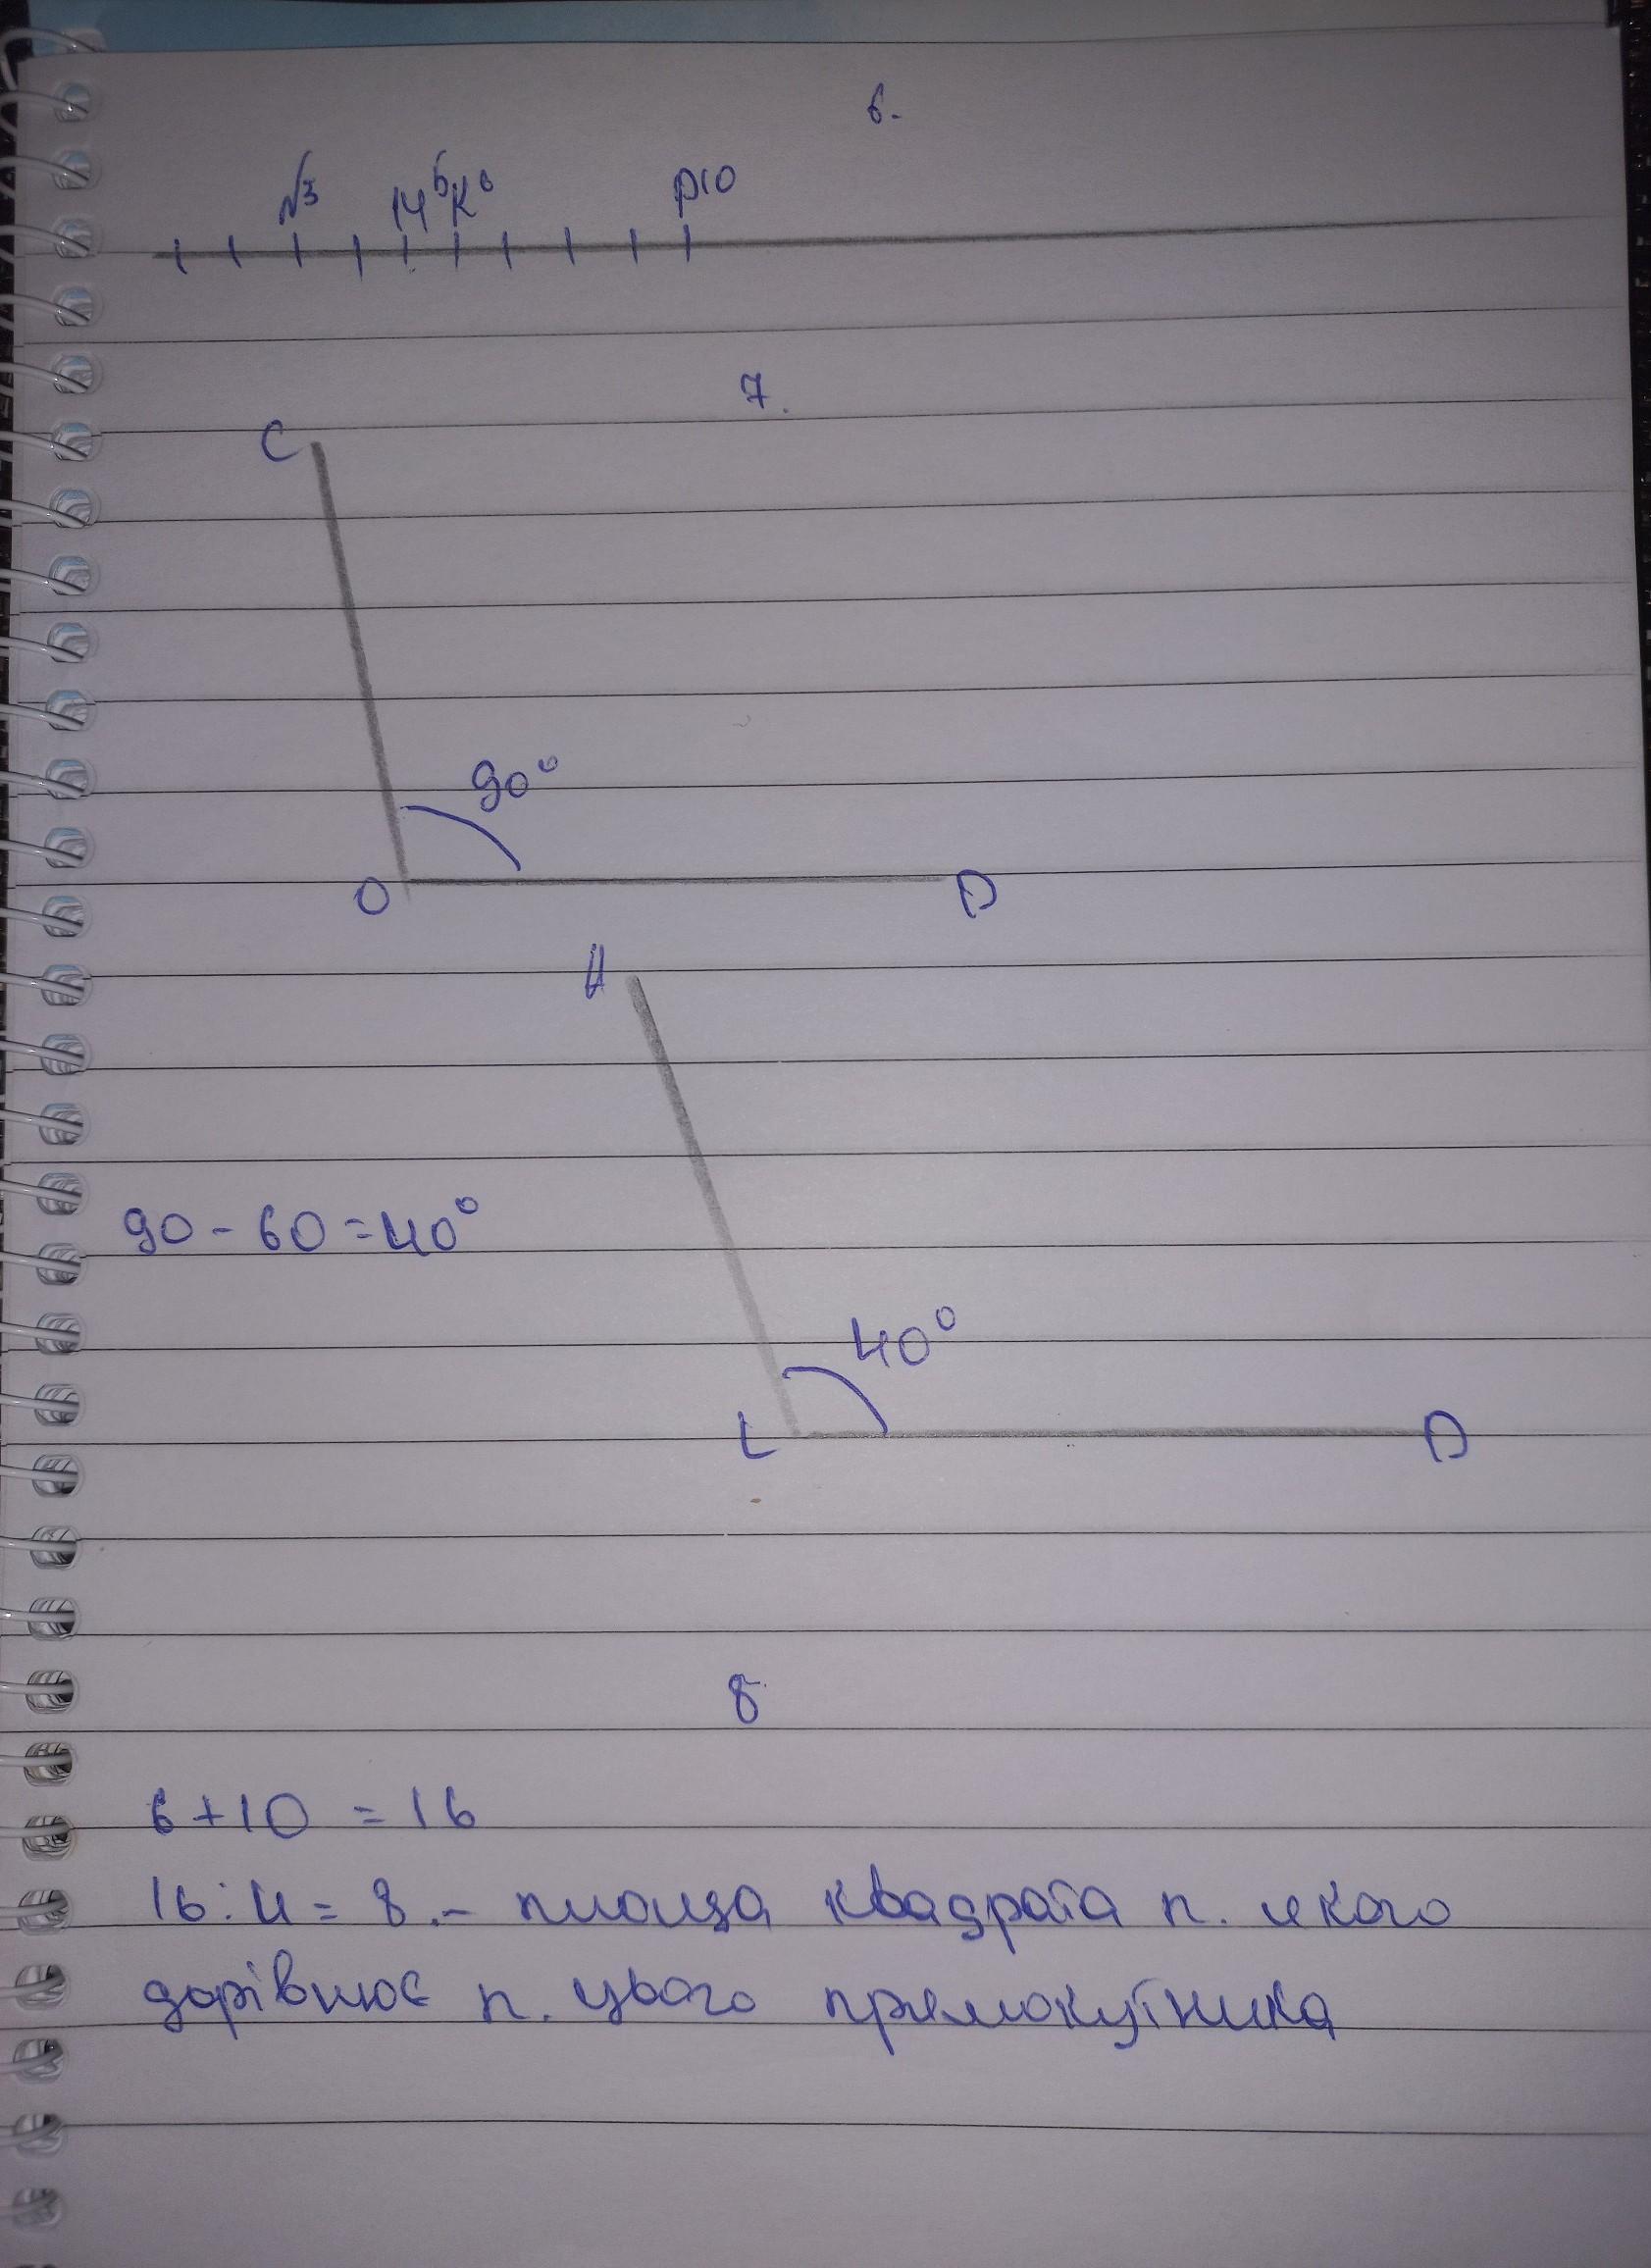 6.
N3 M5 K6 P10
7.
C
90°
O D
A
90 - 60 = 40°
40°
L D
8
6 + 10 = 16
16 : 4 = 8 . - площа квадрата п. якого
дорівнює п. цього прямокутника